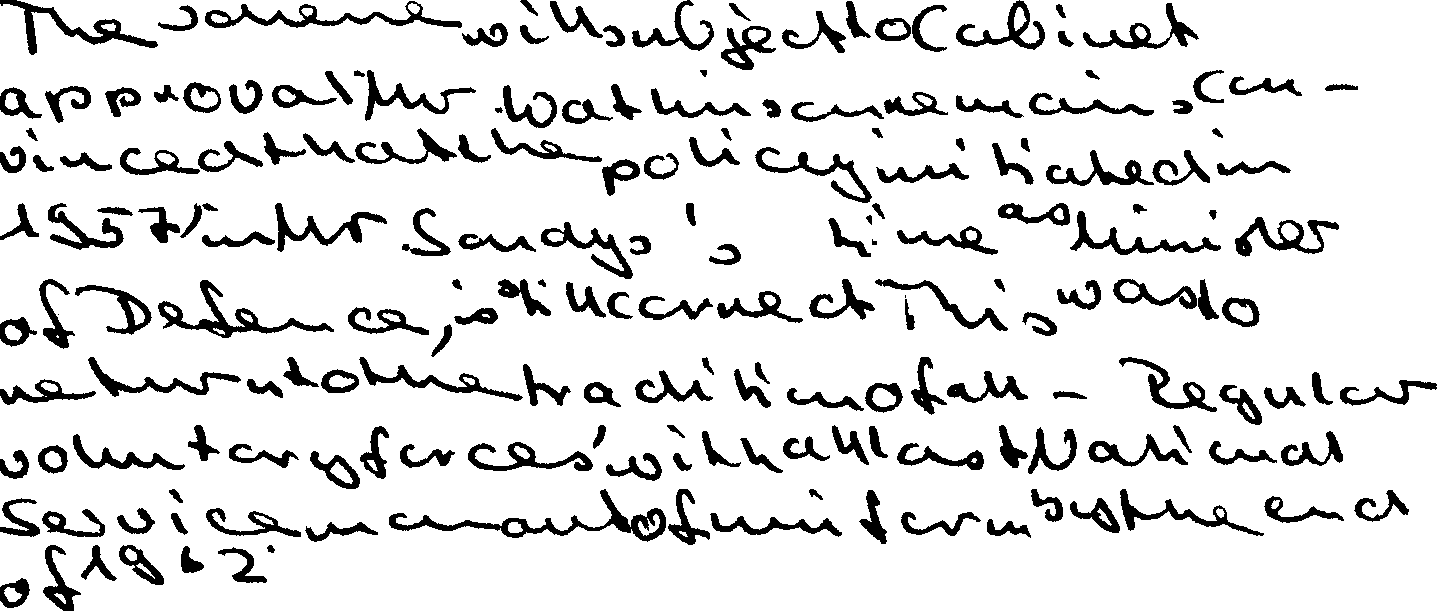 The scheme will subject to Cabinet
approval Mr Watkinson remains con-
vinced that the policy initiated in
1957 in Mr Sandys's time as Minister
of Defence, is still correct This was to
return to the tradition of all - Regular
voluntary forces with the last National
Serviceman out of uniform by the end
of 1962.